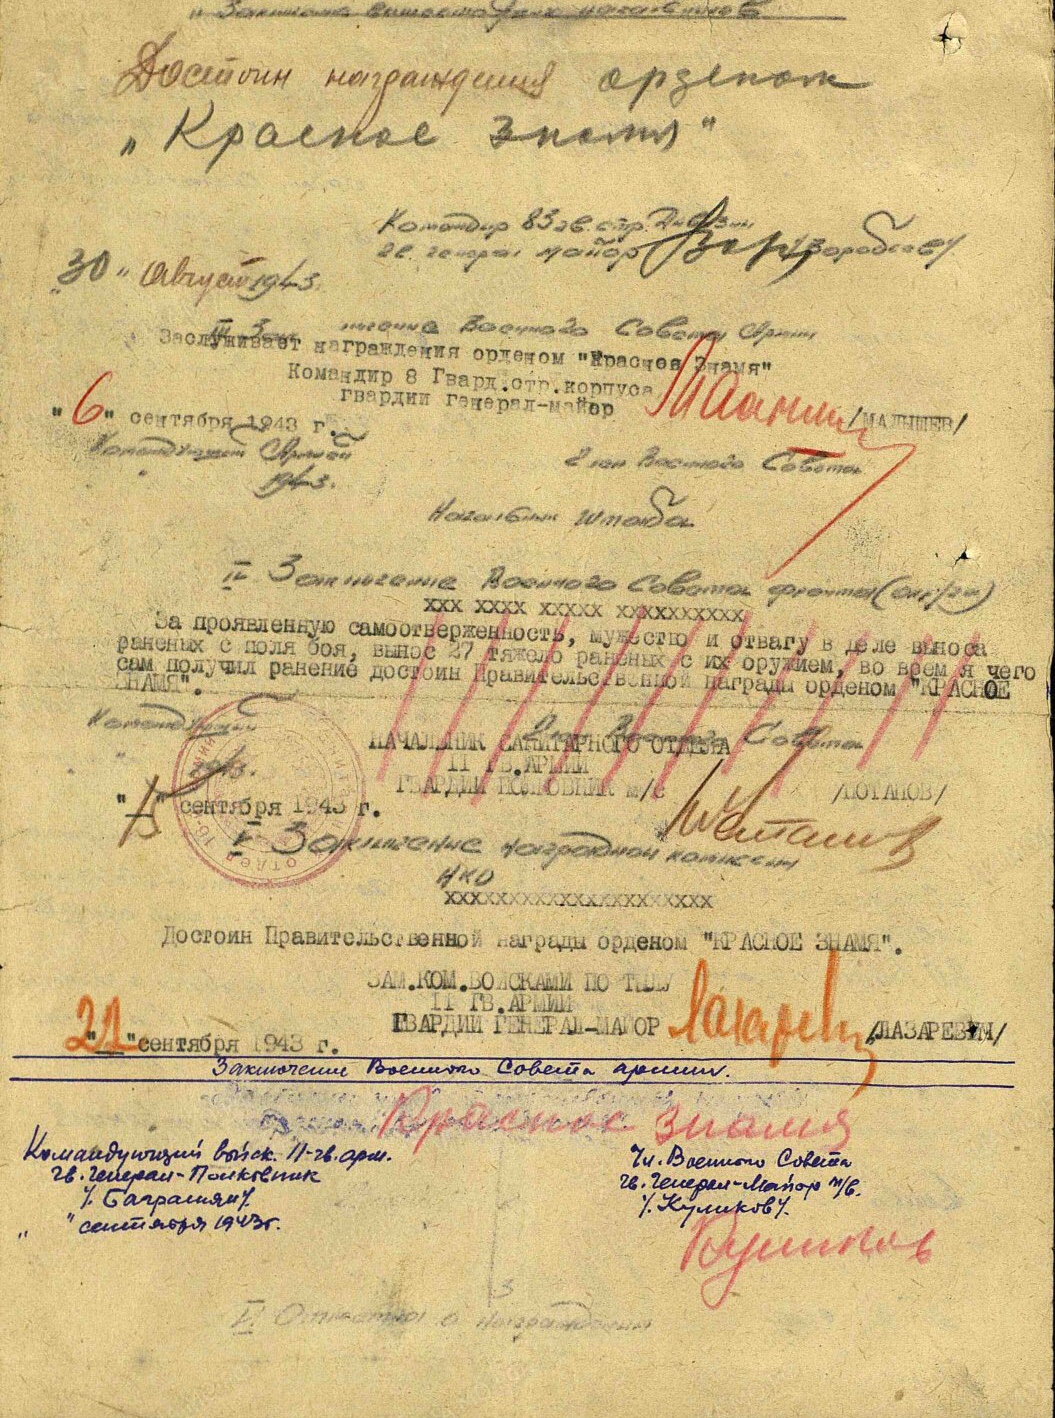 "Заключение вышестоящих начальников
Достоин награждения орденом
"Красное знамя"
Командир 83 гв. стр. дивизии
гв. генерал майор /Воробьев/
"30" август 1943.
III Заключение Военного Совета Армии
Заслуживает награждения орденом "Красное Знамя"
Командир 8 Гвард.стр.корпуса
гвардии генерал-майор /МАЛЫШЕВ/
"6" сентября 1943 г.
Командующий Армией Член Военного Совета
1943.
Начальник штаба
IV Заключение Военного Совета фронта (округа)
ххх хххх ххххх хххххххххх
За проявленную самоотверженность, мужество и отвагу в деле выноса
раненых с поля боя, вынос 27 тяжело раненых с их оружием, во врем я чего
сам получил ранение достоин Правительственной награды орденом "КРАСНОЕ
ЗНАМЯ".
Командующий Член Военного Совета
НАЧАЛЬНИК САНИТАРНОГО ОТДЕЛА
1943.
II ГВ.АРМИИ
ГВАРДИИ ПОЛКОВНИК м/с /ПОТАПОВ/
" " сентября 1943 г.
V Заключение наградной комиссии
НКО
ххххххххххххххххххххх
Достоин Правительственной награды орденом "КРАСНОЕ ЗНАМЯ".
ЗАМ.КОМ.ВОЙСКАМИ ПО ТЫЛУ
II ГВ.АРМИИ
ГВАРДИИ ГЕНЕРАЛ-МАЙОР /ЛАЗАРЕВИЧ/
"21" сентября 1943 г.
Заключение Военного Совета армии.
Красное знамя
Командующий войск. 11-гв.арм. Чл. Военного Совета
гв. Генерал-Полковник гв. Генерал-Майор т/в.
/. Баграмян/. /. Куликов/.
" " сентября 1943г.
Куликов
3
VI Отметка о награждении